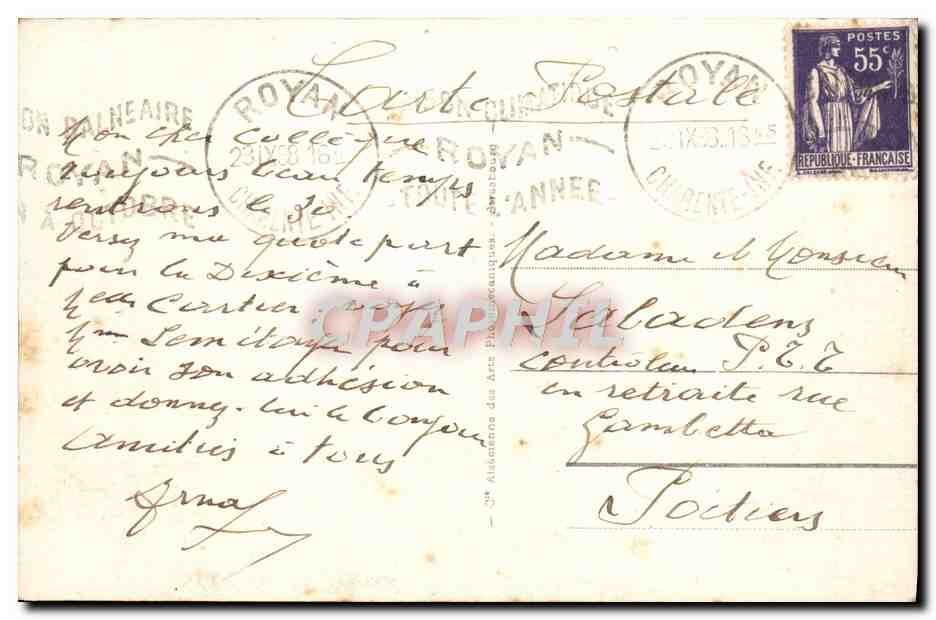 Carte Postale
ON BALNEAIRE
ROYAN
A OCTOBRE
ROYAN
23 IX 38 16
CHARENTE-INF
ON CLIMATIQUE
ROYAN
TOUTE L'ANNEE
ROYAN
IX 38.16 45
CHARENTE-INF
POSTES
55c
REPUBLIQUE-FRANÇAISE
Mon cher collègue
toujours beau temps
rentrons le 30.
Versez ma quote part
pour la Dixième à
Melle Cartier, voyez
Mme Lemitayer pour
avoir son adhésion
et donnez-lui le bonjour
amitiés à tous
Arnal
Cie Alsacienne des Arts Photomécaniques, Strasbourg
Madame et Monsieur
Sabadens
controleur P.T.T
en retraite rue
Gambetta
Poitiers
CPAPHIL